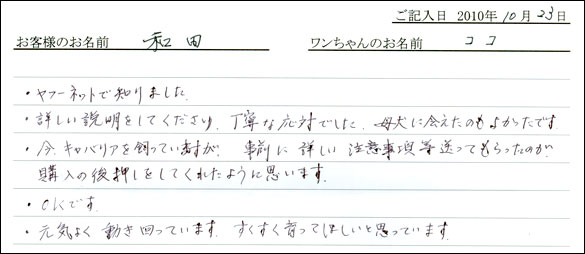 ご記入日 2010年 10月 23日
お客様のお名前 和田 ワンちゃんのお名前 ココ
・ヤフーネットで知りました
・詳しい説明をしてくださり、丁寧な応対でした、母犬に会えたのもよかったです。
・今キャバリアを飼っていますが、事前に詳しい注意事項等送ってもらったのが
購入の後押しをしてくれたように思います。
・OKです。
・元気よく動き回っています。すくすく育ってほしいと思っています。